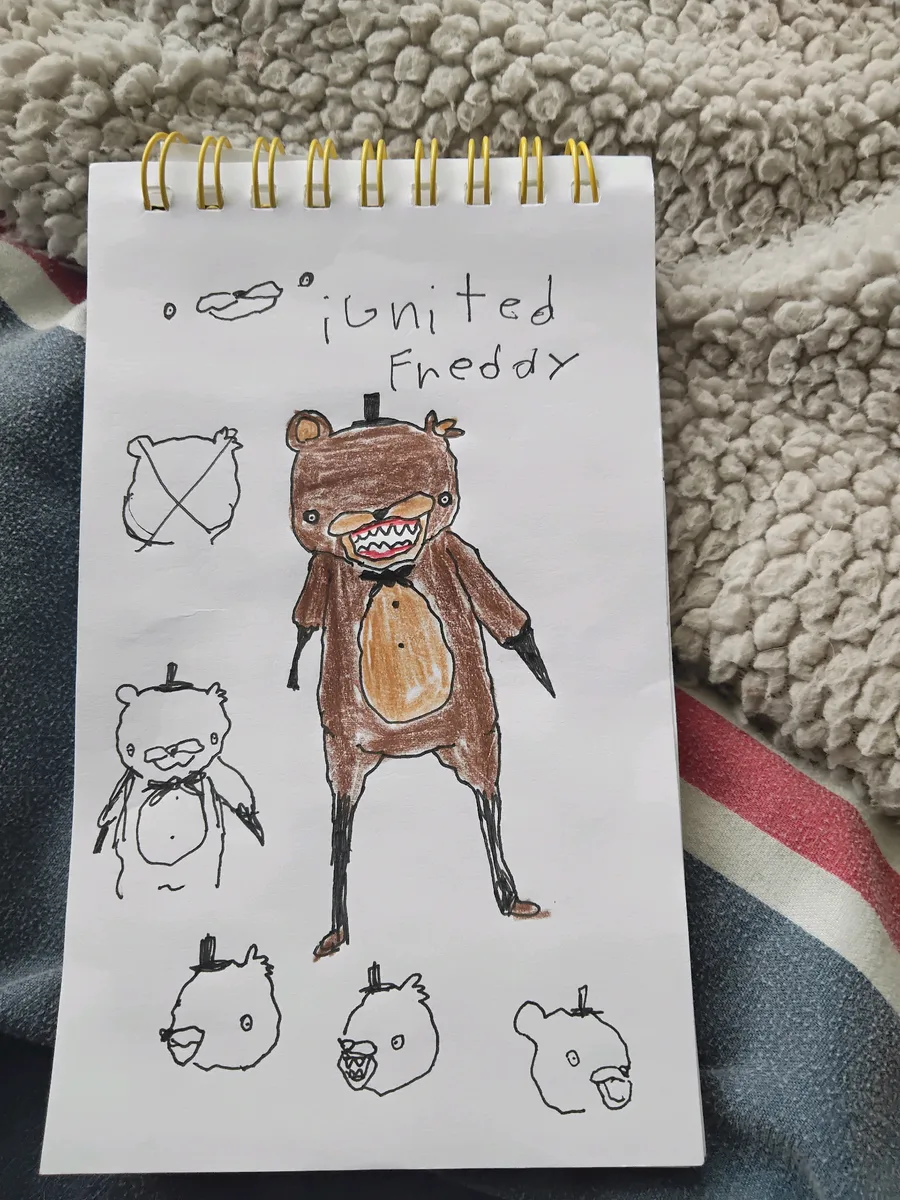 iGnited
Freddy